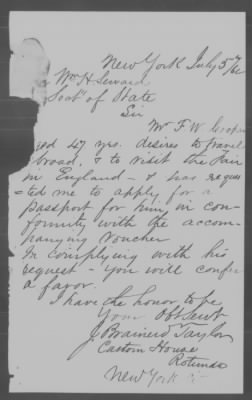 New York July 5th/62
Wm H. Seward
Secty of State
Sir
Mr F. W. Cooper
aged 47 yrs. desires to travel
abroad, & to visit the Fair
in England - & has reques
ted me to apply for a
passport for him in con-
formity with the accom-
panying Voucher
In complying with his
request - you will confer
a favor.
I have the honor to be
Your Obt Servt
J. Brainerd Taylor
Custom House
Rotunda
New York